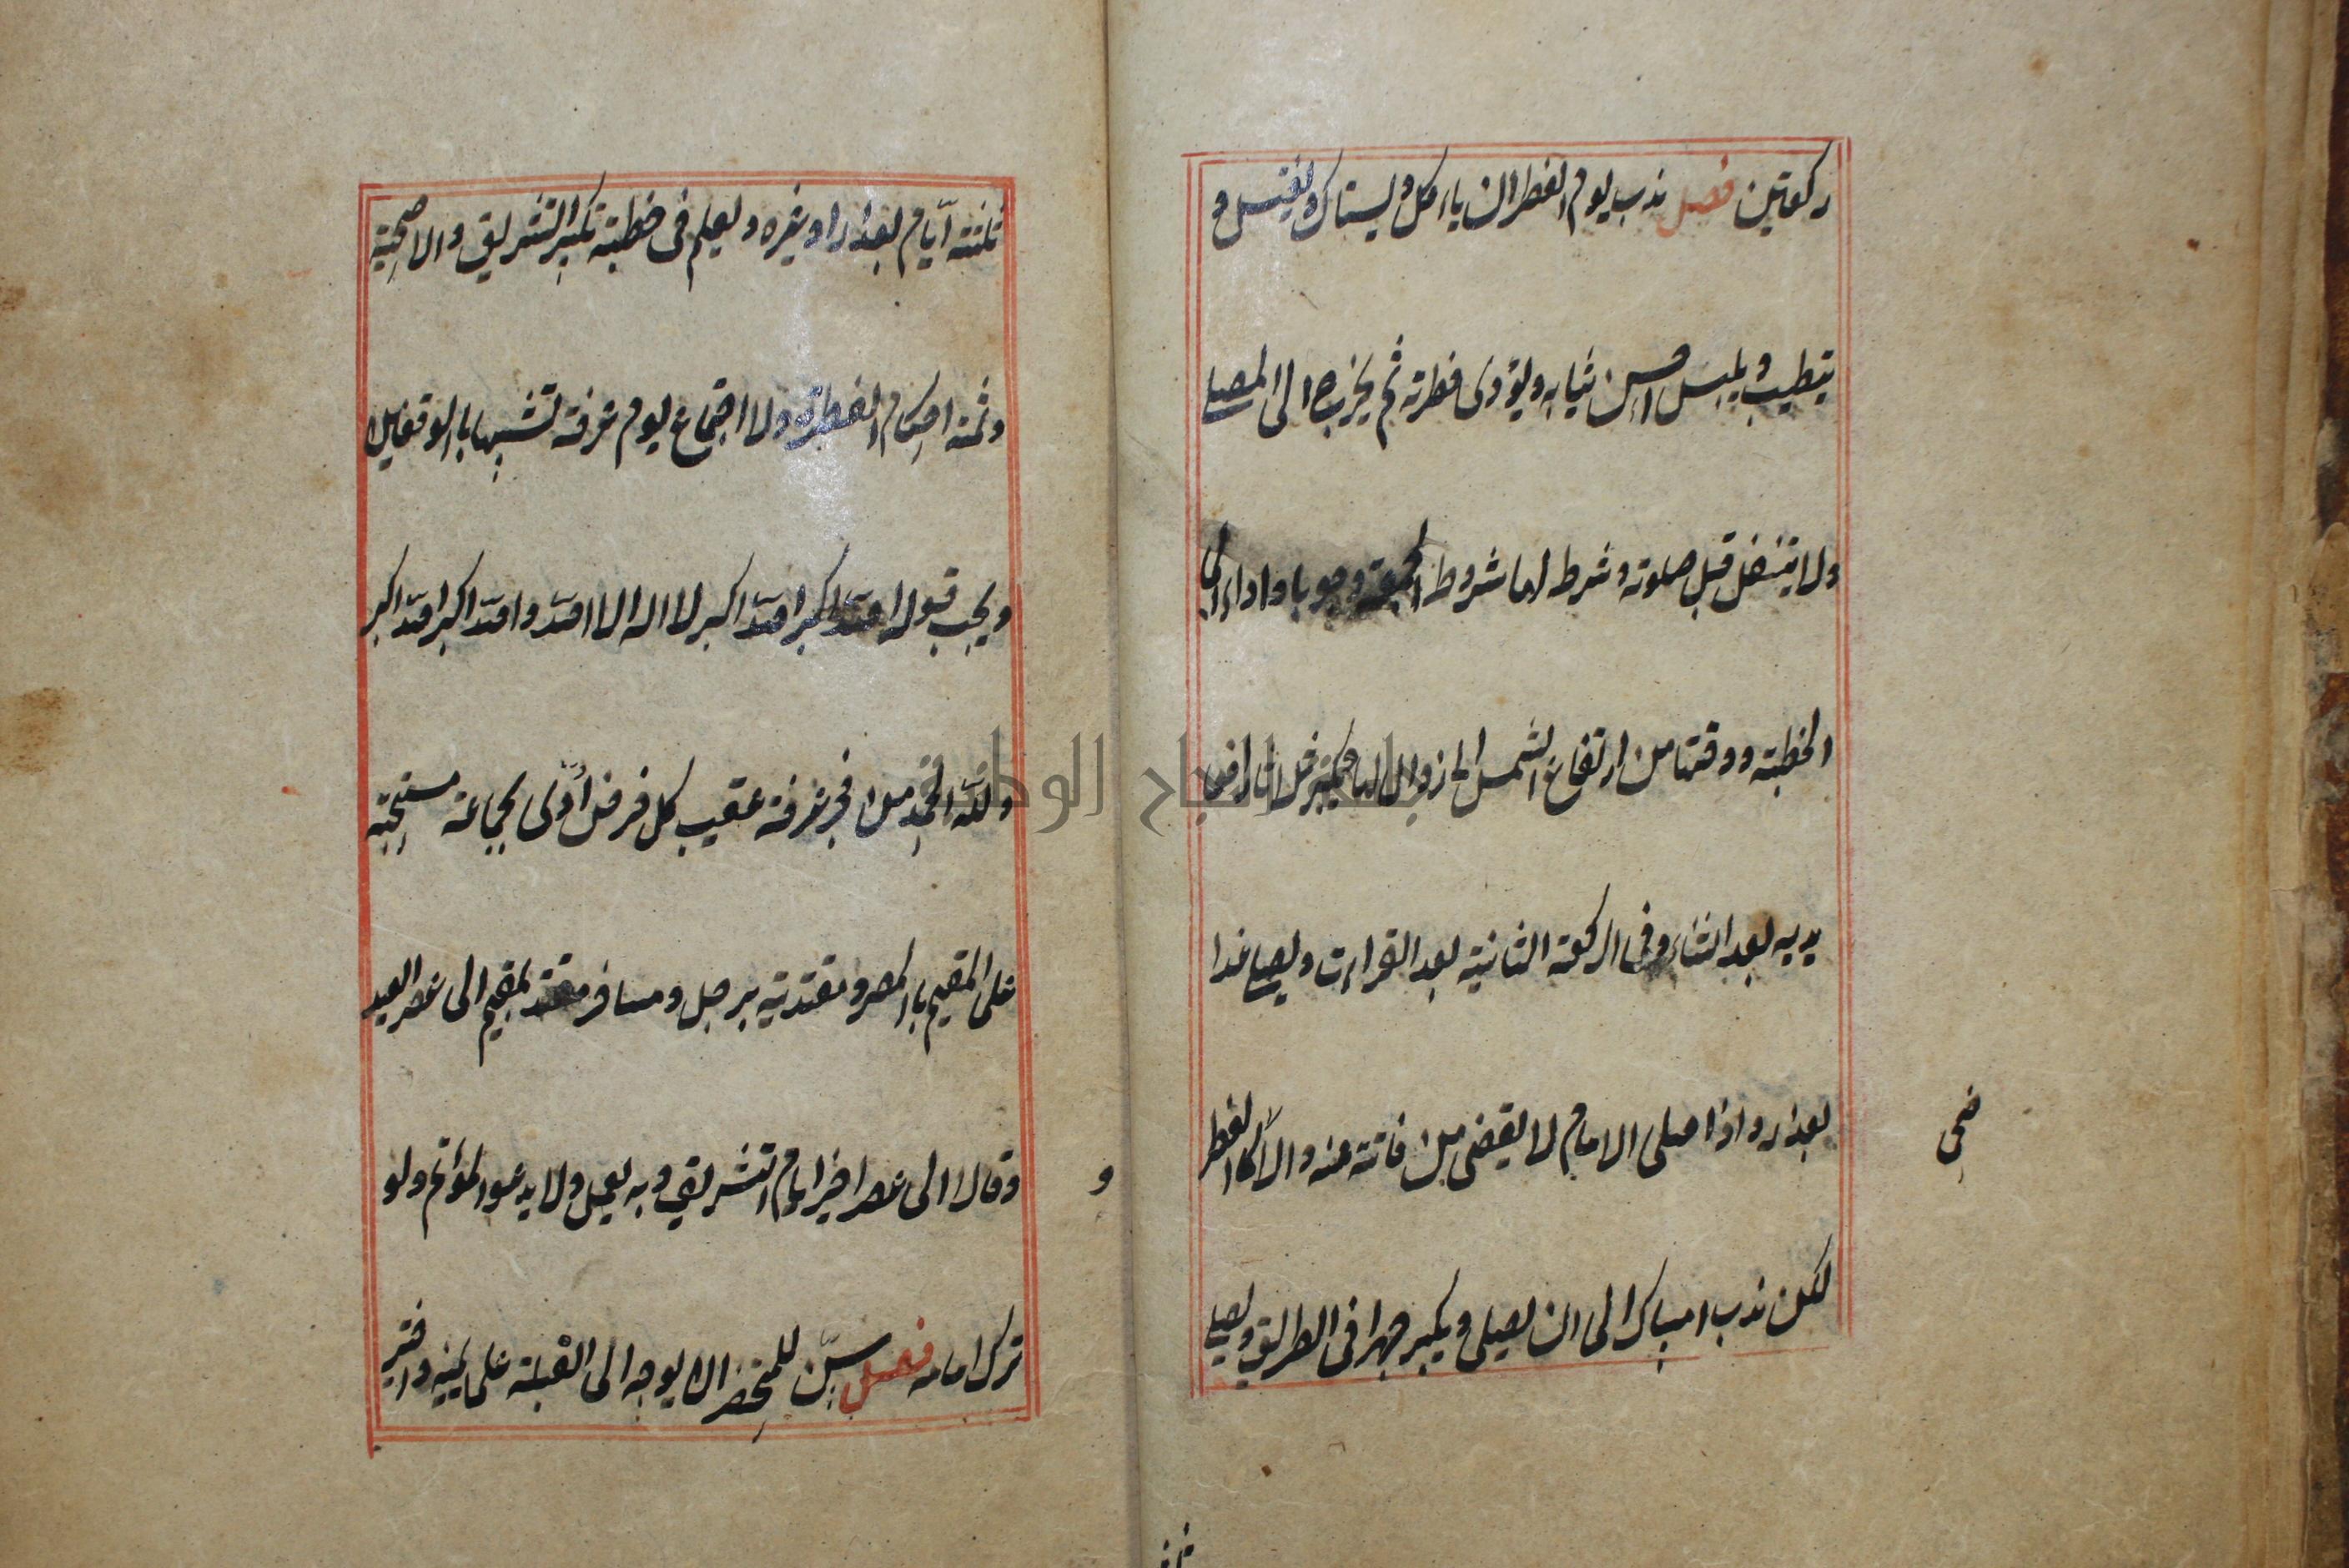 ركعتين فصل ندب يوم الفطر ان ياءكل ويستاك ويغتسل و
يتطيب ويلبس احسن ثيابه ويؤدى فطرته ثم يخرج الى المصلى
ولا يتنفل قبل صلوته وشرط لها شروط الجمعة وجوبا واداء الا
الخطبة ووقتها من ارتفاع الشمس الى زوالها ثلاثا رافعا
يديه بعد الثناء وفى الركعة الثانية بعد القراءت ويصلى غدا
بعذر واذا صلى الامام لا يقضى من فاتته عنه والا كالفطر
ضحى
لكن ندب امساك الى ان يصلى ويكبر جهرا فى الطريق ويصلى
ثلثة
ثلثة ايّام بعذر او بغيره ويعلم فى خطبته تكبير التشريق والاضحية
وثمة احكام الفطرة ولا اجتماع يوم عرفة تشبها بالواقفين
ويجب قوله الله اكبر الله اكبر لا اله الا الله والله اكبر الله اكبر
ولله الحمد من فجر عرفة عقيب كل فرض أدّى بجماعة مستحبة
على المقيم بالمصر ومقتدية برجل ومسافر مقتد بمقيم الى عصر العيد
و
وقالا الى عصر اخير ايام التشريق وبه يعمل ولا يدعو المؤتم ولو
ترك امامه فصل سنّ للمحتضر ان يوجه الى القبلة على يمينه واختير
بلد الحاج الوطنية